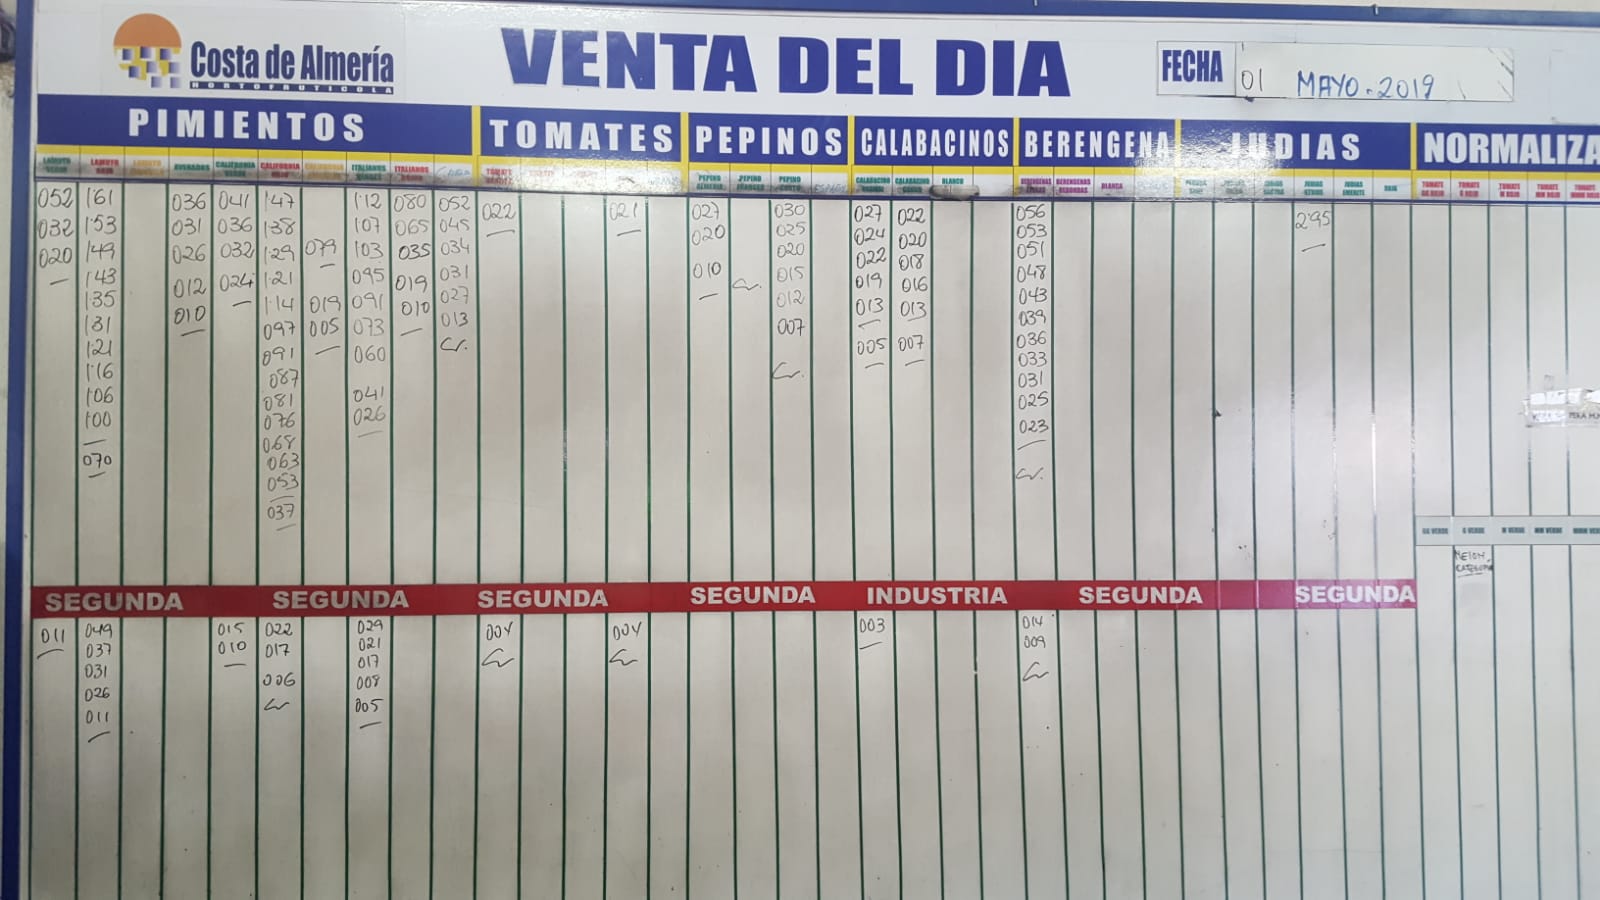 Costa de Almería
HORTOFRUTICOLA
VENTA DEL DIA
FECHA
01 MAYO-2019
PIMIENTOS TOMATES PEPINOS CALABACINOS BERENGENA JUDIAS NORMALIZA
LAMUYO VERDE LAMUYO ROJO ASURADOS CALIFORNIA VERDE CALIFORNIA ROJO ITALIANOS VERDES ITALIANOS ROJOS PEPINO ALMERIA PEPINO FRANCES PEPINO CORTO ESPAÑOL CALABACINO CALABACINO BLANCO BERENGENAS BERENGENAS REDONDAS BLANCA
052
032
020
1'61
1'53
1'49
1'43
1'35
1'31
1'21
1'16
1'06
1'00
070
036
031
026
012
010
041
036
032
024
1'47
1'38
1'29
1'21
1'14
097
091
087
081
076
068
063
053
037
079
019
005
1'12
107
103
095
091
073
060
041
026
080
065
035
019
010
052
045
034
031
027
013
Cr.
022
021
027
020
010
Cr.
030
025
020
015
012
007
Cr.
027
024
022
019
013
005
022
020
018
016
013
007
056
053
051
048
043
039
036
033
031
025
023
Cr.
2'95
GG VERDE G VERDE M VERDE MM VERDE
MELON
CATEGORIA
SEGUNDA SEGUNDA SEGUNDA SEGUNDA INDUSTRIA SEGUNDA SEGUNDA
011
049
037
031
026
011
015
010
022
017
006
Cr
029
021
017
008
005
004
Cr
004
Cr
003
014
009
Cr